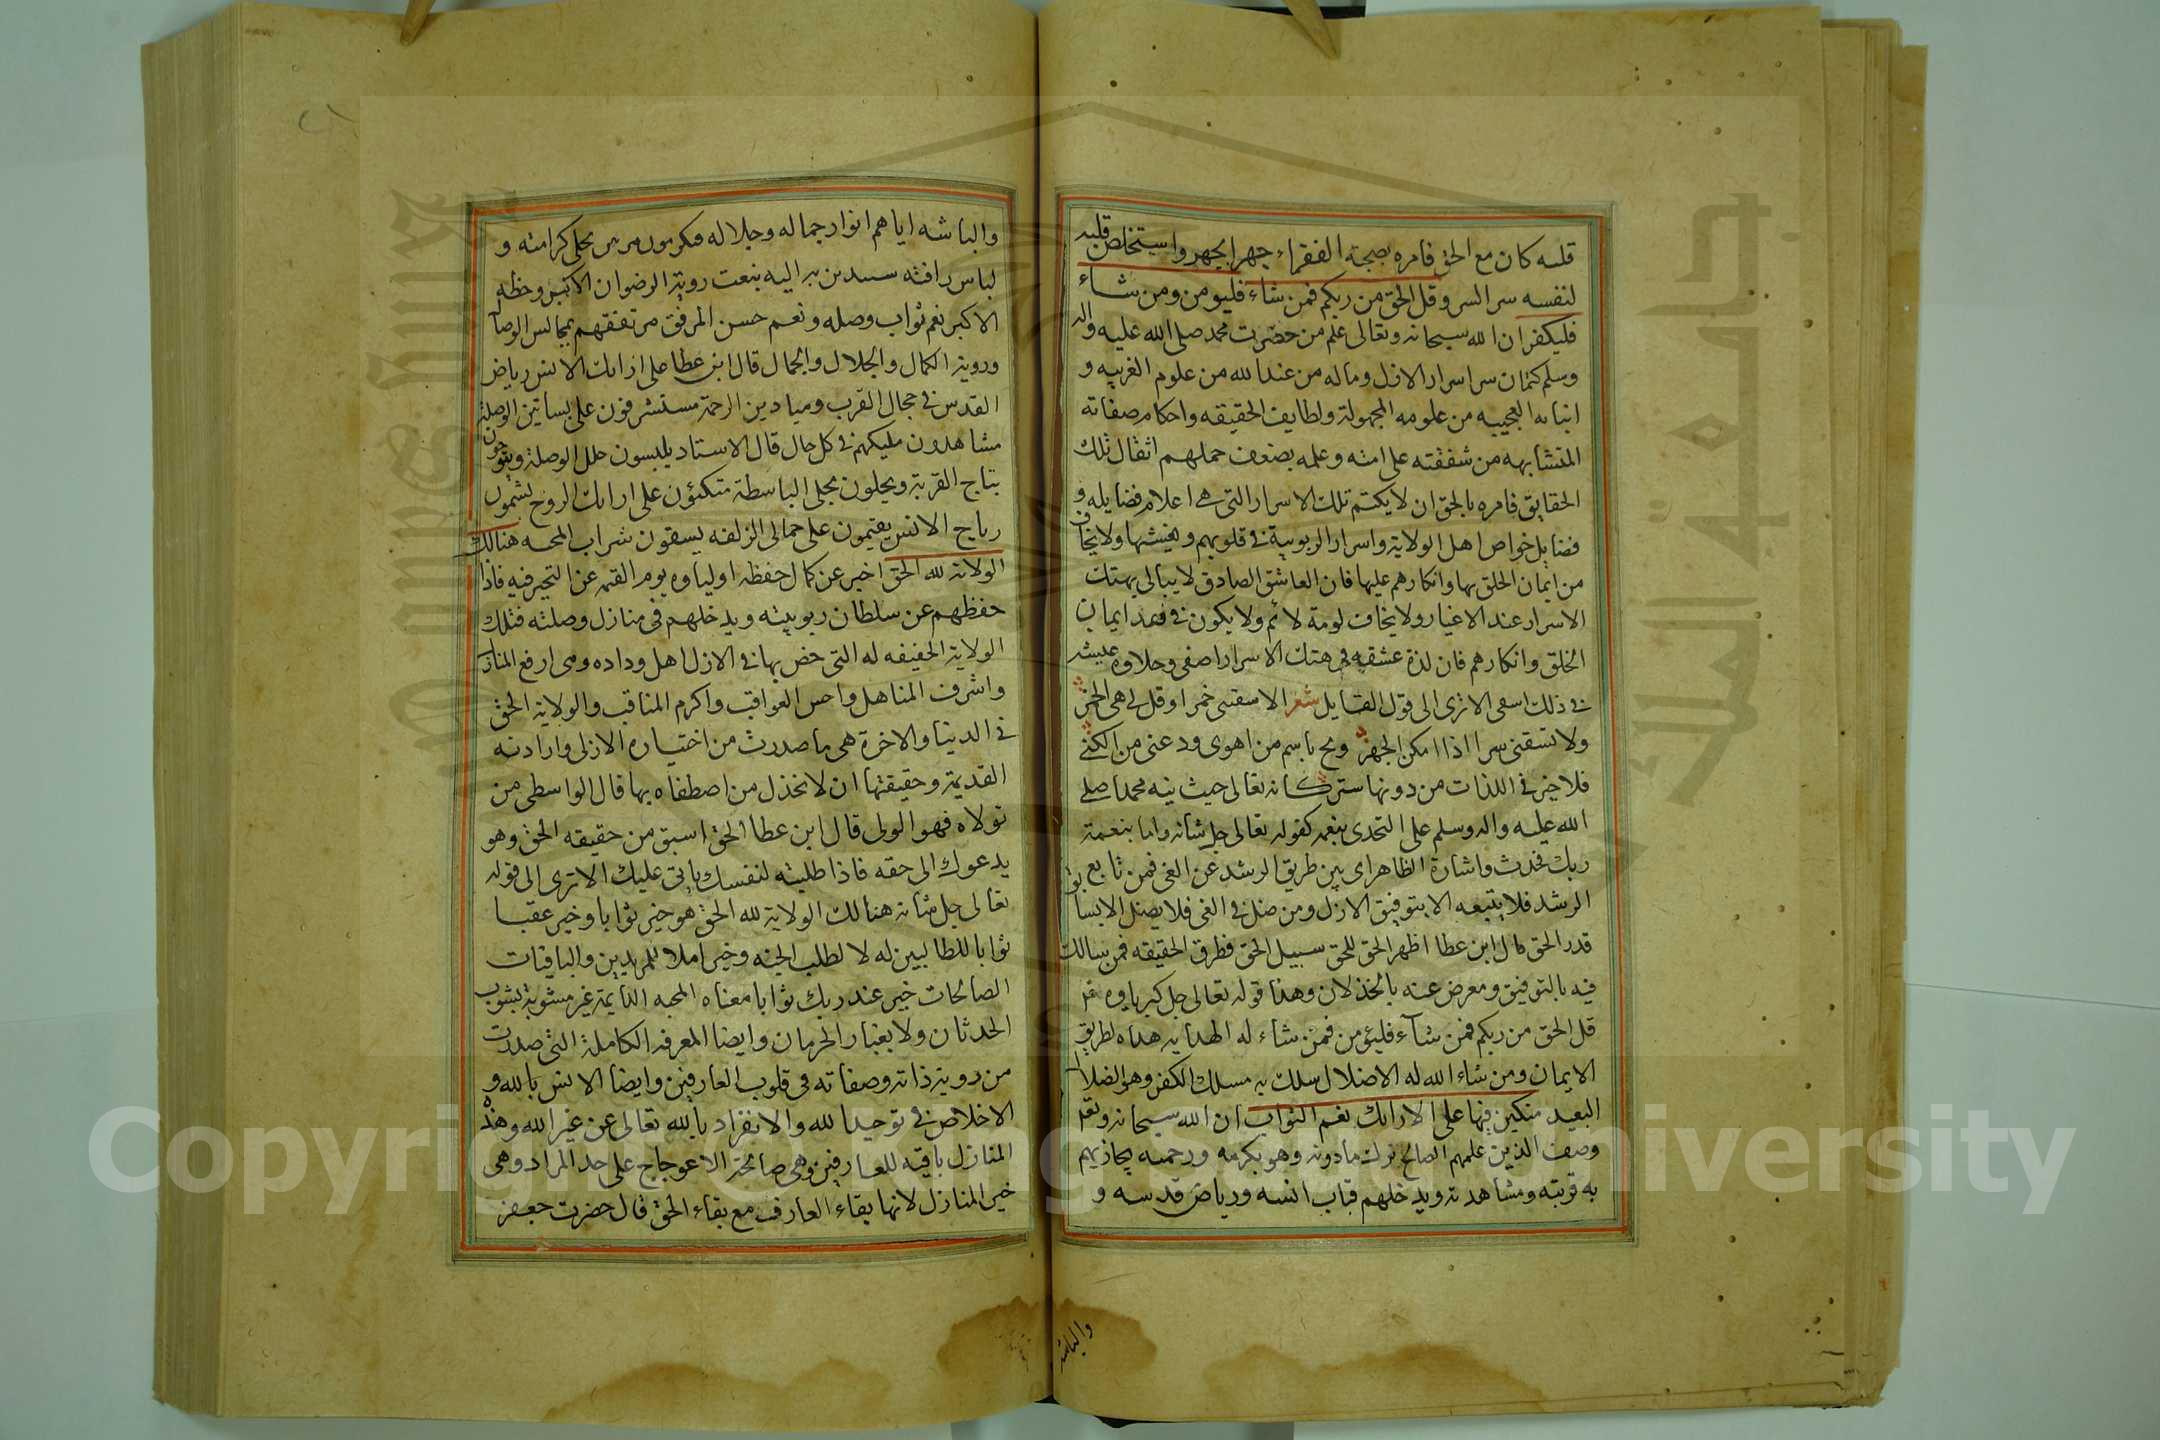 قلبه كان مع الحق فامره بصحبة الفقراء جهرا بجهر واستخلص قلبه
لنفسه سر السر وقل الحق من ربكم فمن شاء فليومن ومن شاء
فليكفر ان الله سبحانه وتعالى علم من حضرت محمد صلى الله عليه واله
وسلم كتمان سر اسرار الازل وماله من عند الله من علوم الغريبه و
انبائه العجيبه من علومه المجهولة ولطايف الحقيقه واحكام صفاته
المتشابهه من شفقته على امته وعلمه بضعف حملهم اثقال تلك
الحقايق فامره بالحق ان لا يكتم تلك الاسرار التى هى اعلام فضايله و
فضايل خواص اهل الولاية واسرار الربوبية فى قلوبهم ويفيشها ولا يخاف
من ايمان الخلق بها وانكارهم عليها فان العاشق الصادق لا يبالى بهتك
الاسرار عند الاغيار ولا يخاف لومة لائم ولا يكون فى قيد ايمان
الخلق وانكارهم فان لذة عشقه فى هتك الاسرار اصفى وحلاوة عيشه
فى ذلك اسقى الا ترى الى قول القايل شعر الا سقنى خمرا وقل لى هى الخمر
ولا تسقنى سرا اذا امكن الجهر وبح باسم من اهوى ودعنى من الكنى
فلا خير فى اللذات من دونها ستر كانه تعالى حيث نبه محمدا صلى
الله عليه واله وسلم على التحدى بنعمه كقوله تعالى جل شانه واما بنعمة
ربك فحدث واشارة الظاهر اى بين طريق الرشد عن الغى فمن تابع
الرشد فلا يتبعه الا بتوفيق الازل ومن ضل فى الغى فلا يضل الا بسابق
قدر الحق قال ابن عطا اظهر الحق للحق سبيل الحق فطرق الحقيقه فمن سالك
فيه بالتوفيق ومعرض عنه بالخذلان وهذا قوله تعالى جل كبرياوه
قل الحق من ربكم فمن شآء فليؤمن فمن شاء له الهدايه هداه لطريق
الايمان ومن شاء الله له الاضلال سلك به مسلك الكفر وهو الضلال
البعيد متكين فيها على الارائك نعم الثواب ان الله سبحانه وتعالى
وصف الذين علمهم الصالح ترك مادونه وهو بكرمه ورحمته يجازيهم
به قربته ومشاهدته ويدخلهم قباب انسه ورياض قدسه و
والباشه
والباشه اياهم انوار جماله وجلاله فيكرمون من محلى كرامته و
لباس رافته بنعت روية الرضوان الاكبر وحظه
الاكبر نعم ثواب وصله ونعم حسن المرفق مرتفقهم مجالس الوصال
وروية الكمال والجلال والجمال قال ابن عطا على ارائك الانس رياض
القدس فى حجال القرب وميادين الرحمة مستشرفون على بساتين الوصلة
مشاهدون مليكهم فى كل حال قال الاستاد يلبسون حلل الوصلة ويتوجون
بتاج القربة ويحلون بحلى الباسطة متكئون على ارائك الروح يشمون
رياح الانس يقيمون على حمالى الزلفه يسقون شراب المحبه هنالك
الولاية لله الحق اخبر عن كمال حفظه اولياوه يوم القيمه عن التحير فيه فاذا
حفظهم عن سلطان ربوبيته ويدخلهم فى منازل وصلته فتلك
الولاية الحقيقه له التى خص بها فى الازل اهل وداده وهى ارفع المنازل
واشرف المناهل واحس العواقب واكرم المناقب والولاية الحق
فى الدينا والاخرة هى ما صدرت من اختياره الازلى وارادته
القديمة وحقيقتها ان لا تخذل من اصطفاه بها قال الواسطى من
تولاه فهو الولى قال ابن عطا الحق اسبق من حقيقه الحق وهو
يدعوك الى حقه فاذا طلبته لنفسك يابى عليك الا ترى الى قوله
تعالى جل شانه هنالك الولاية لله الحق هو خير ثوابا وخير عقبا
ثوابا للطالبين له لا لطلب الجنه وخير املا للمريدين والباقيات
الصالحات خير عند ربك ثوابا معناه المحبه الدايمة غير مشوبة بشوب
الحدثان ولا بغبار الحرمان وايضا المعرفه الكاملة التى صدرت
من روية ذاته وصفاته فى قلوب العارفين وايضا الانس بالله و
الاخلاص فى توحيد الله والانفراد بالله تعالى عن غير الله وهذه
المنازل باقيه للعارفين وهى صالحة الاعوجاج على حد المراد وهى
خير المنازل لانها بقاء العارف مع بقاء الحق قال حضرت جعفر
Copyright © King Saud University